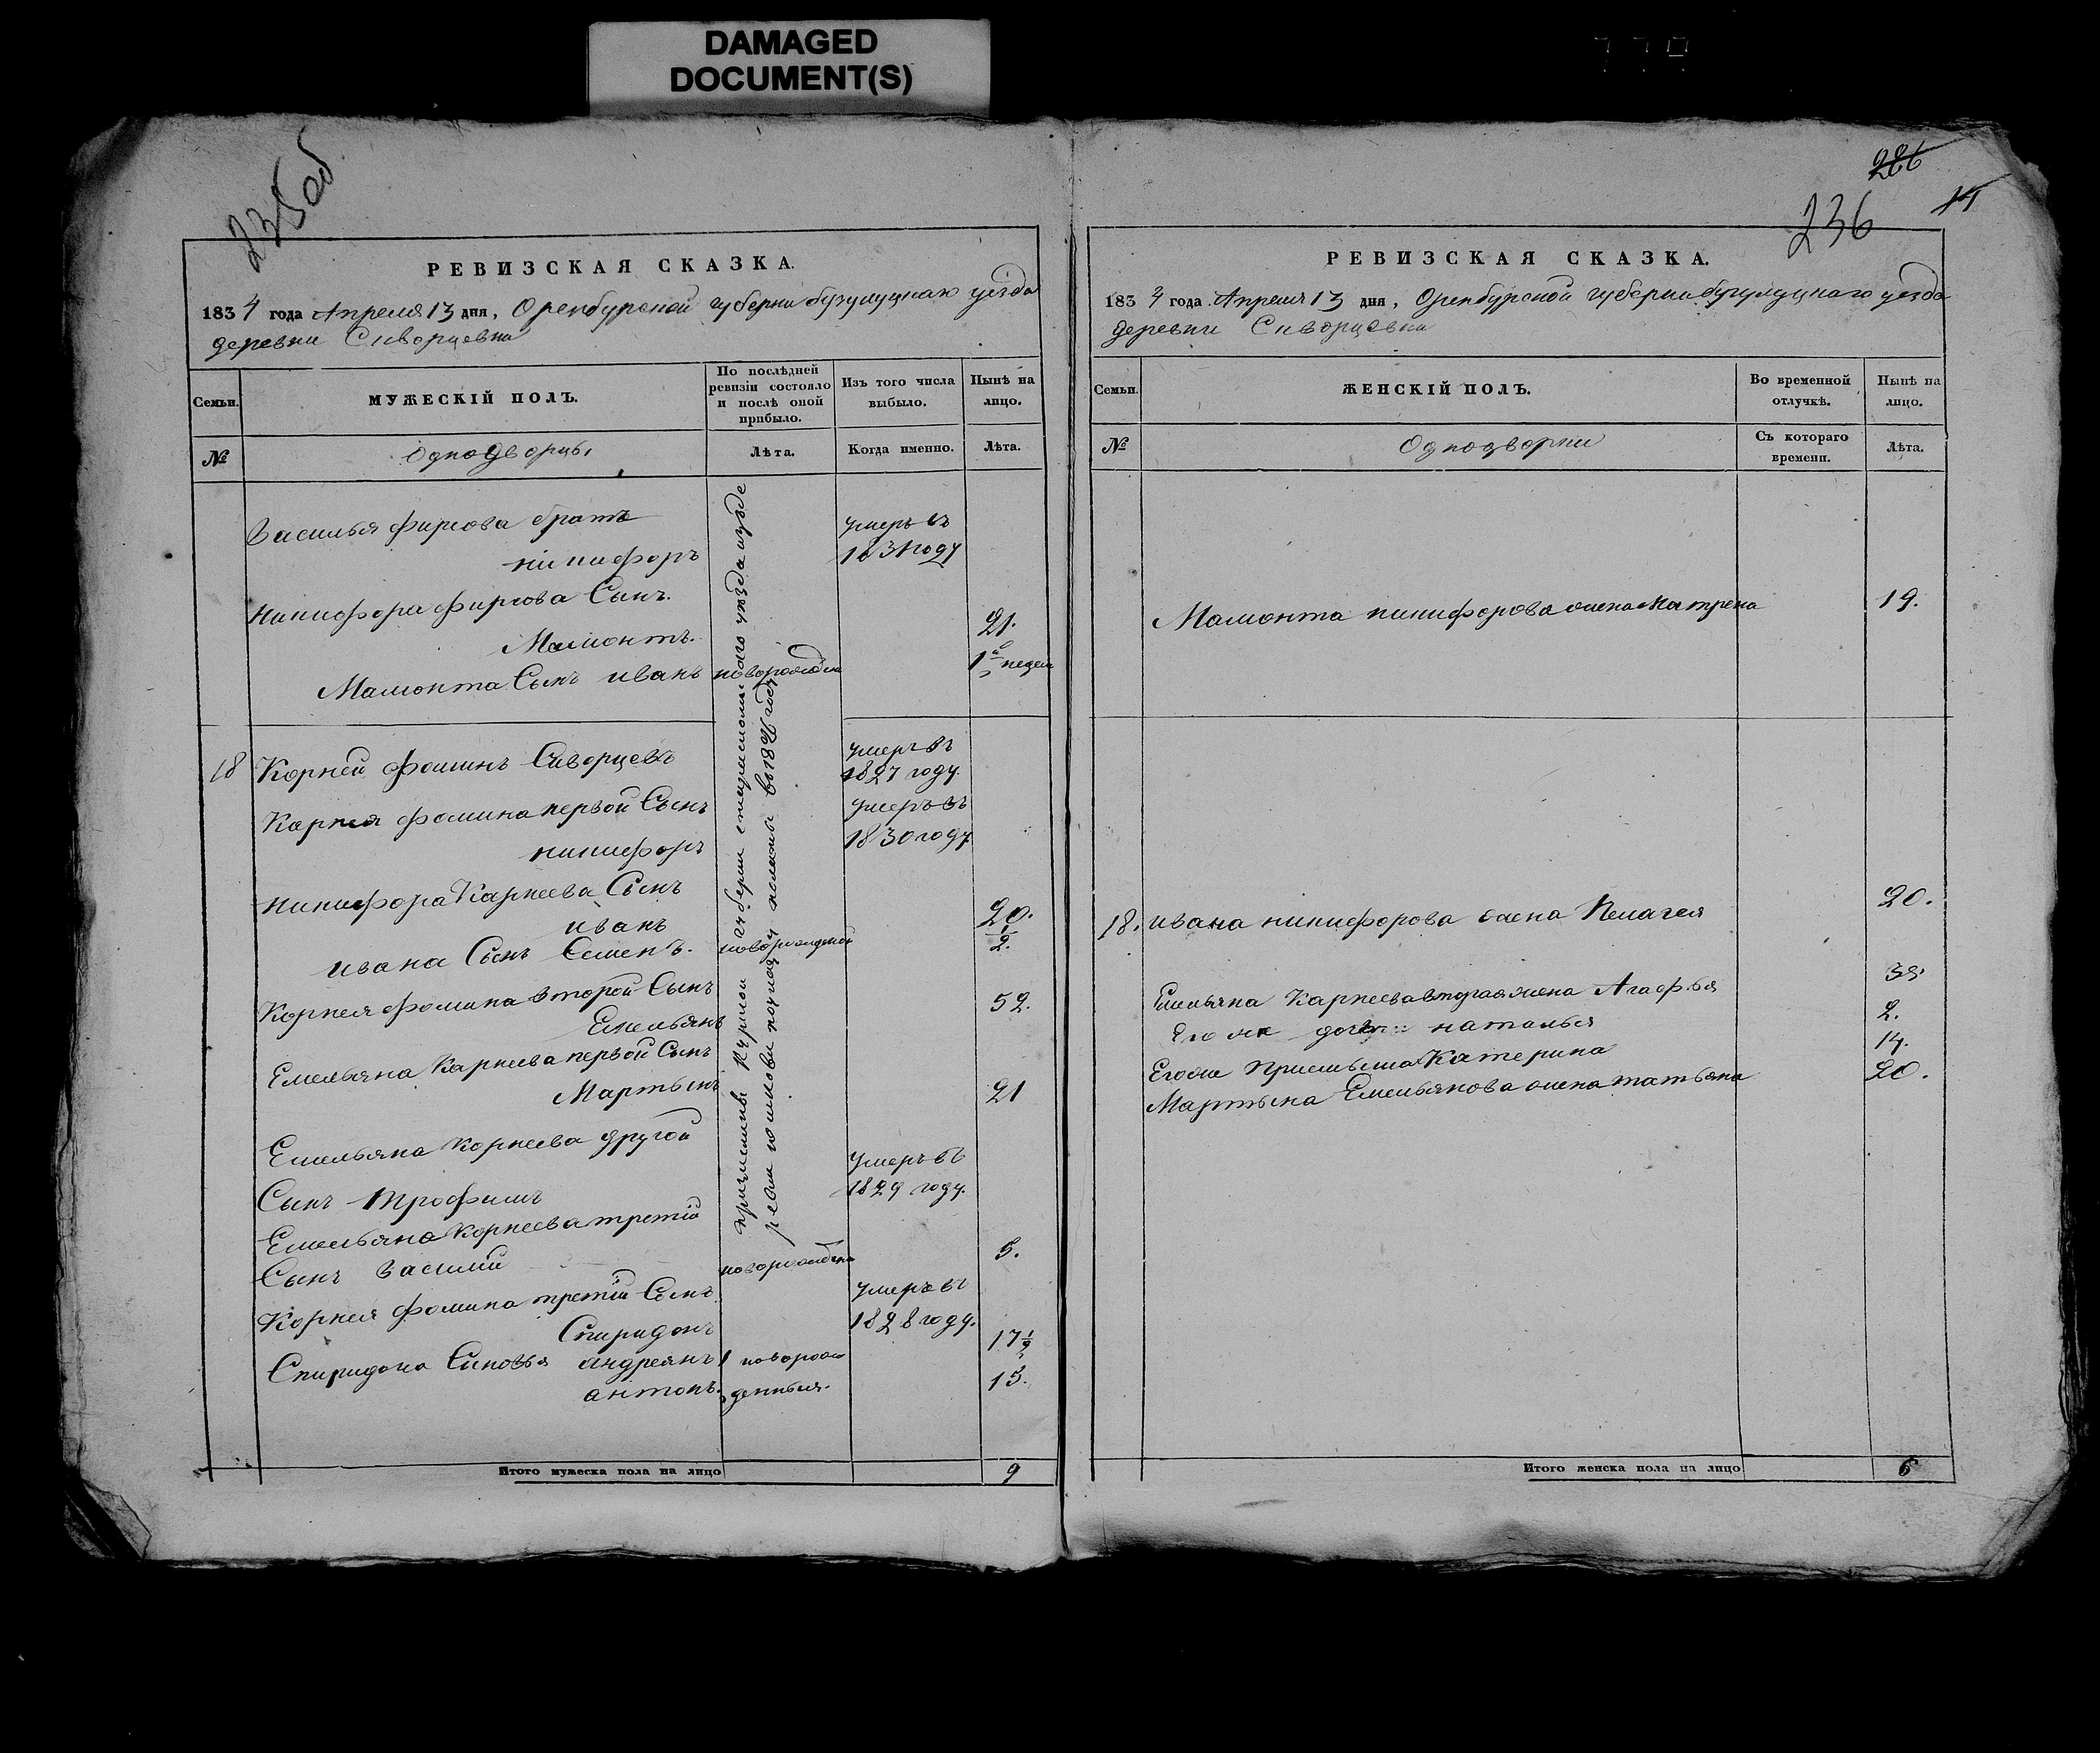 DAMAGED
DOCUMENT(S)
235 об
РЕВИЗСКАЯ СКАЗКА.
1834 года Апреля 13 дня, Оренбурской губерни бузулуцкаго уезда
деревни Сиворцевки
Семьи.
МУЖЕСКІЙ ПОЛЪ.
По послѣдней
ревизіи состояло
и послѣ оной
прибыло.
Изъ того числа
выбыло.
Нынѣ на
лицо.
№
Однодворцы
Лѣта.
Когда именно.
Лѣта.
Василья фирсова братъ
никифоръ
умеръ въ
1831 году
Никифора фирсова Сынъ
Мамонтъ.
21.
Мамонта Сынъ иванъ
новорожден
1 недел
18
Корней фоминъ Сиворцевъ
умеръ въ
1827 году.
Корнея фомина первой Сынъ
никифоръ
умеръ въ
1830 году
никифора Карнеева Сынъ
иванъ
20.
ивана Сынъ Семенъ.
новорожденой
1/2.
Корнея фомина второй Сынъ
Емельянъ
52.
Емельяна Карнеева первой Сынъ
Мартынъ
21
Емельяна Корнеева другой
Сынъ Трофимъ
умеръ въ
1829 году.
Емельяна Корнеева третій
Сынъ василий
новорожден
5.
Корнея фомина третій Сынъ
Спиридонъ
умеръ въ
1828 году.
Спиридона Сыновья андреянъ
новорож
17 1/2
антонъ.
денныя.
13.
причислены Курской губерни уезда
в 1826 году
Итого мужеска пола на лицо
9
286
236
РЕВИЗСКАЯ СКАЗКА.
1834 года Апреля 13 дня, Оренбурской губерни бузулуцкаго уезда
деревни Сиворцевки
Семьи.
ЖЕНСКІЙ ПОЛЪ.
Во временной
отлучкѣ.
Нынѣ на
лицо.
№
Однодворки
Съ котораго
времени.
Лѣта.
Мамонта никифорова жена Матрена
19.
18. ивана никифорова жена Пелагея
20.
Емельяна Карнеева вторая жена Агафья
38.
Его же дочь наталья
2.
Его же Катерина
14.
Мартына Емельянова жена татьяна
20.
Итого женска пола на лицо
6